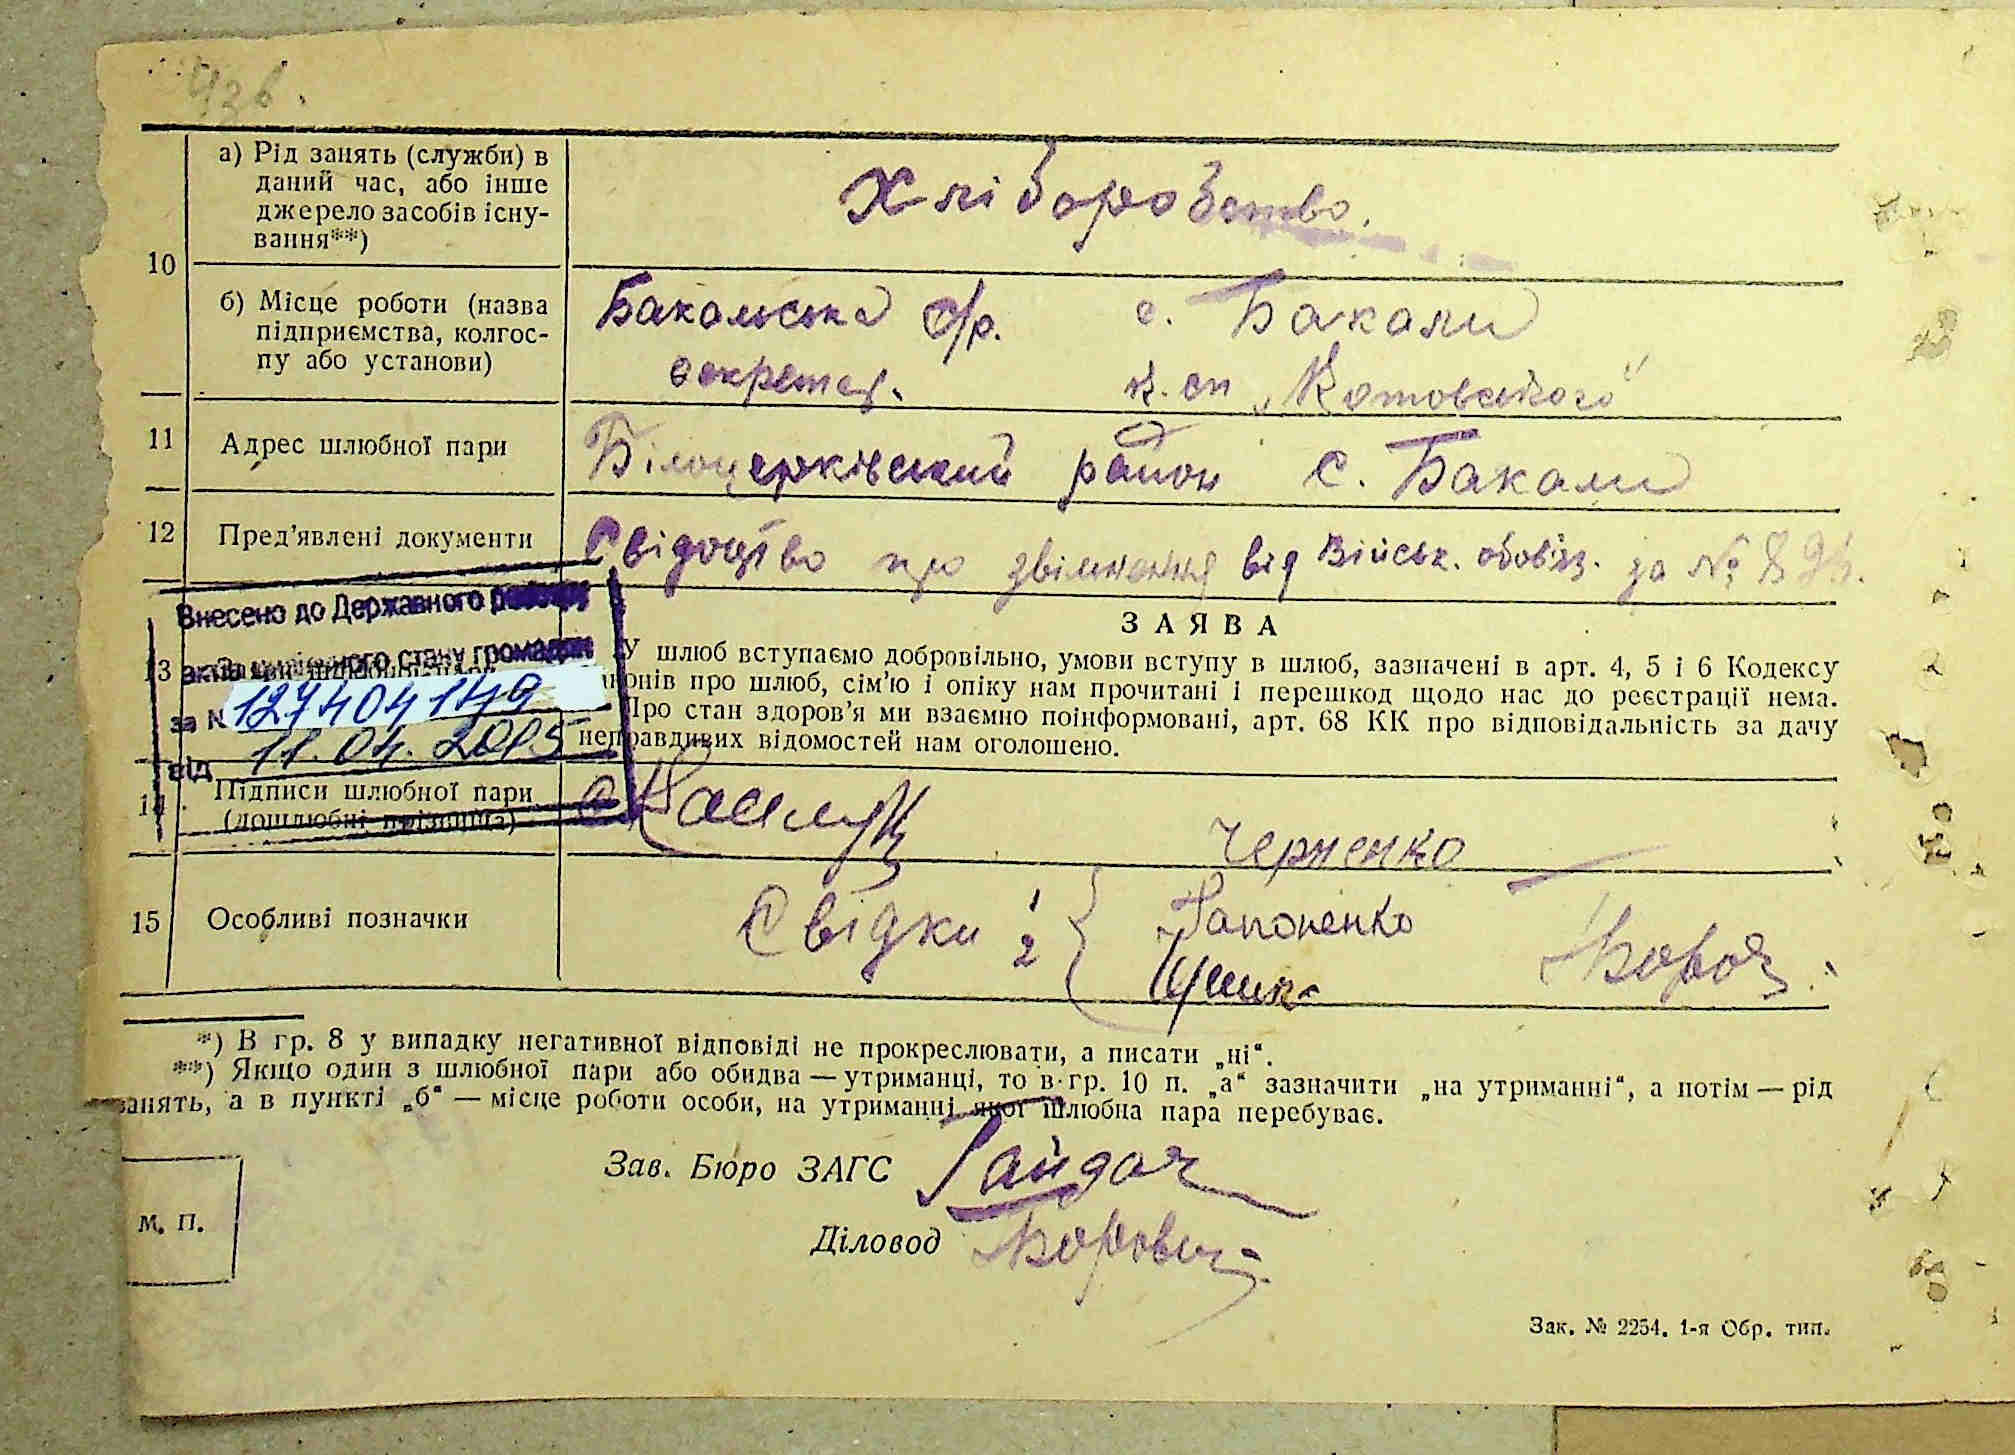 а) Рід занять (служби) в
даний час, або інше
джерело засобів існу-
вання**)
Хліборобство.
10
б) Місце роботи (назва
підприємства, колгос-
пу або установи)
Бакальська с/р. с. Бакали
секретар. к. сп „Котовського"
11 Адрес шлюбної пари
Білоцерківський район с. Бакали
12 Пред'явлені документи
Свідоцтво про звільнення від Військ. обов'яз. за №
Внесено до Державного реєстру
актів цивільного стану громадян
за №
від 11.04.
13
ЗАЯВА
У шлюб вступаємо добровільно, умови вступу в шлюб, зазначені в арт. 4, 5 і 6 Кодексу
законів про шлюб, сім'ю і опіку нам прочитані і перешкод щодо нас до реєстрації нема.
Про стан здоров'я ми взаємно поінформовані, арт. 68 КК про відповідальність за дачу
неправдивих відомостей нам оголошено.
14 Підписи шлюбної пари
(дошлюбні прізвища)
Черненко
15 Особливі позначки
Свідки 1
2
Гапоненко
*) В гр. 8 у випадку негативної відповіді не прокреслювати, а писати „ні“.
**) Якщо один з шлюбної пари або обидва — утриманці, то в гр. 10 п. „а“ зазначити „на утриманні“, а потім — рід
занять, а в пункті „б“ — місце роботи особи, на утриманні якої шлюбна пара перебуває.
Зав. Бюро ЗАГС Гайдач
Діловод
М. П.
Зак. № 2254. 1-я Обр. тип.